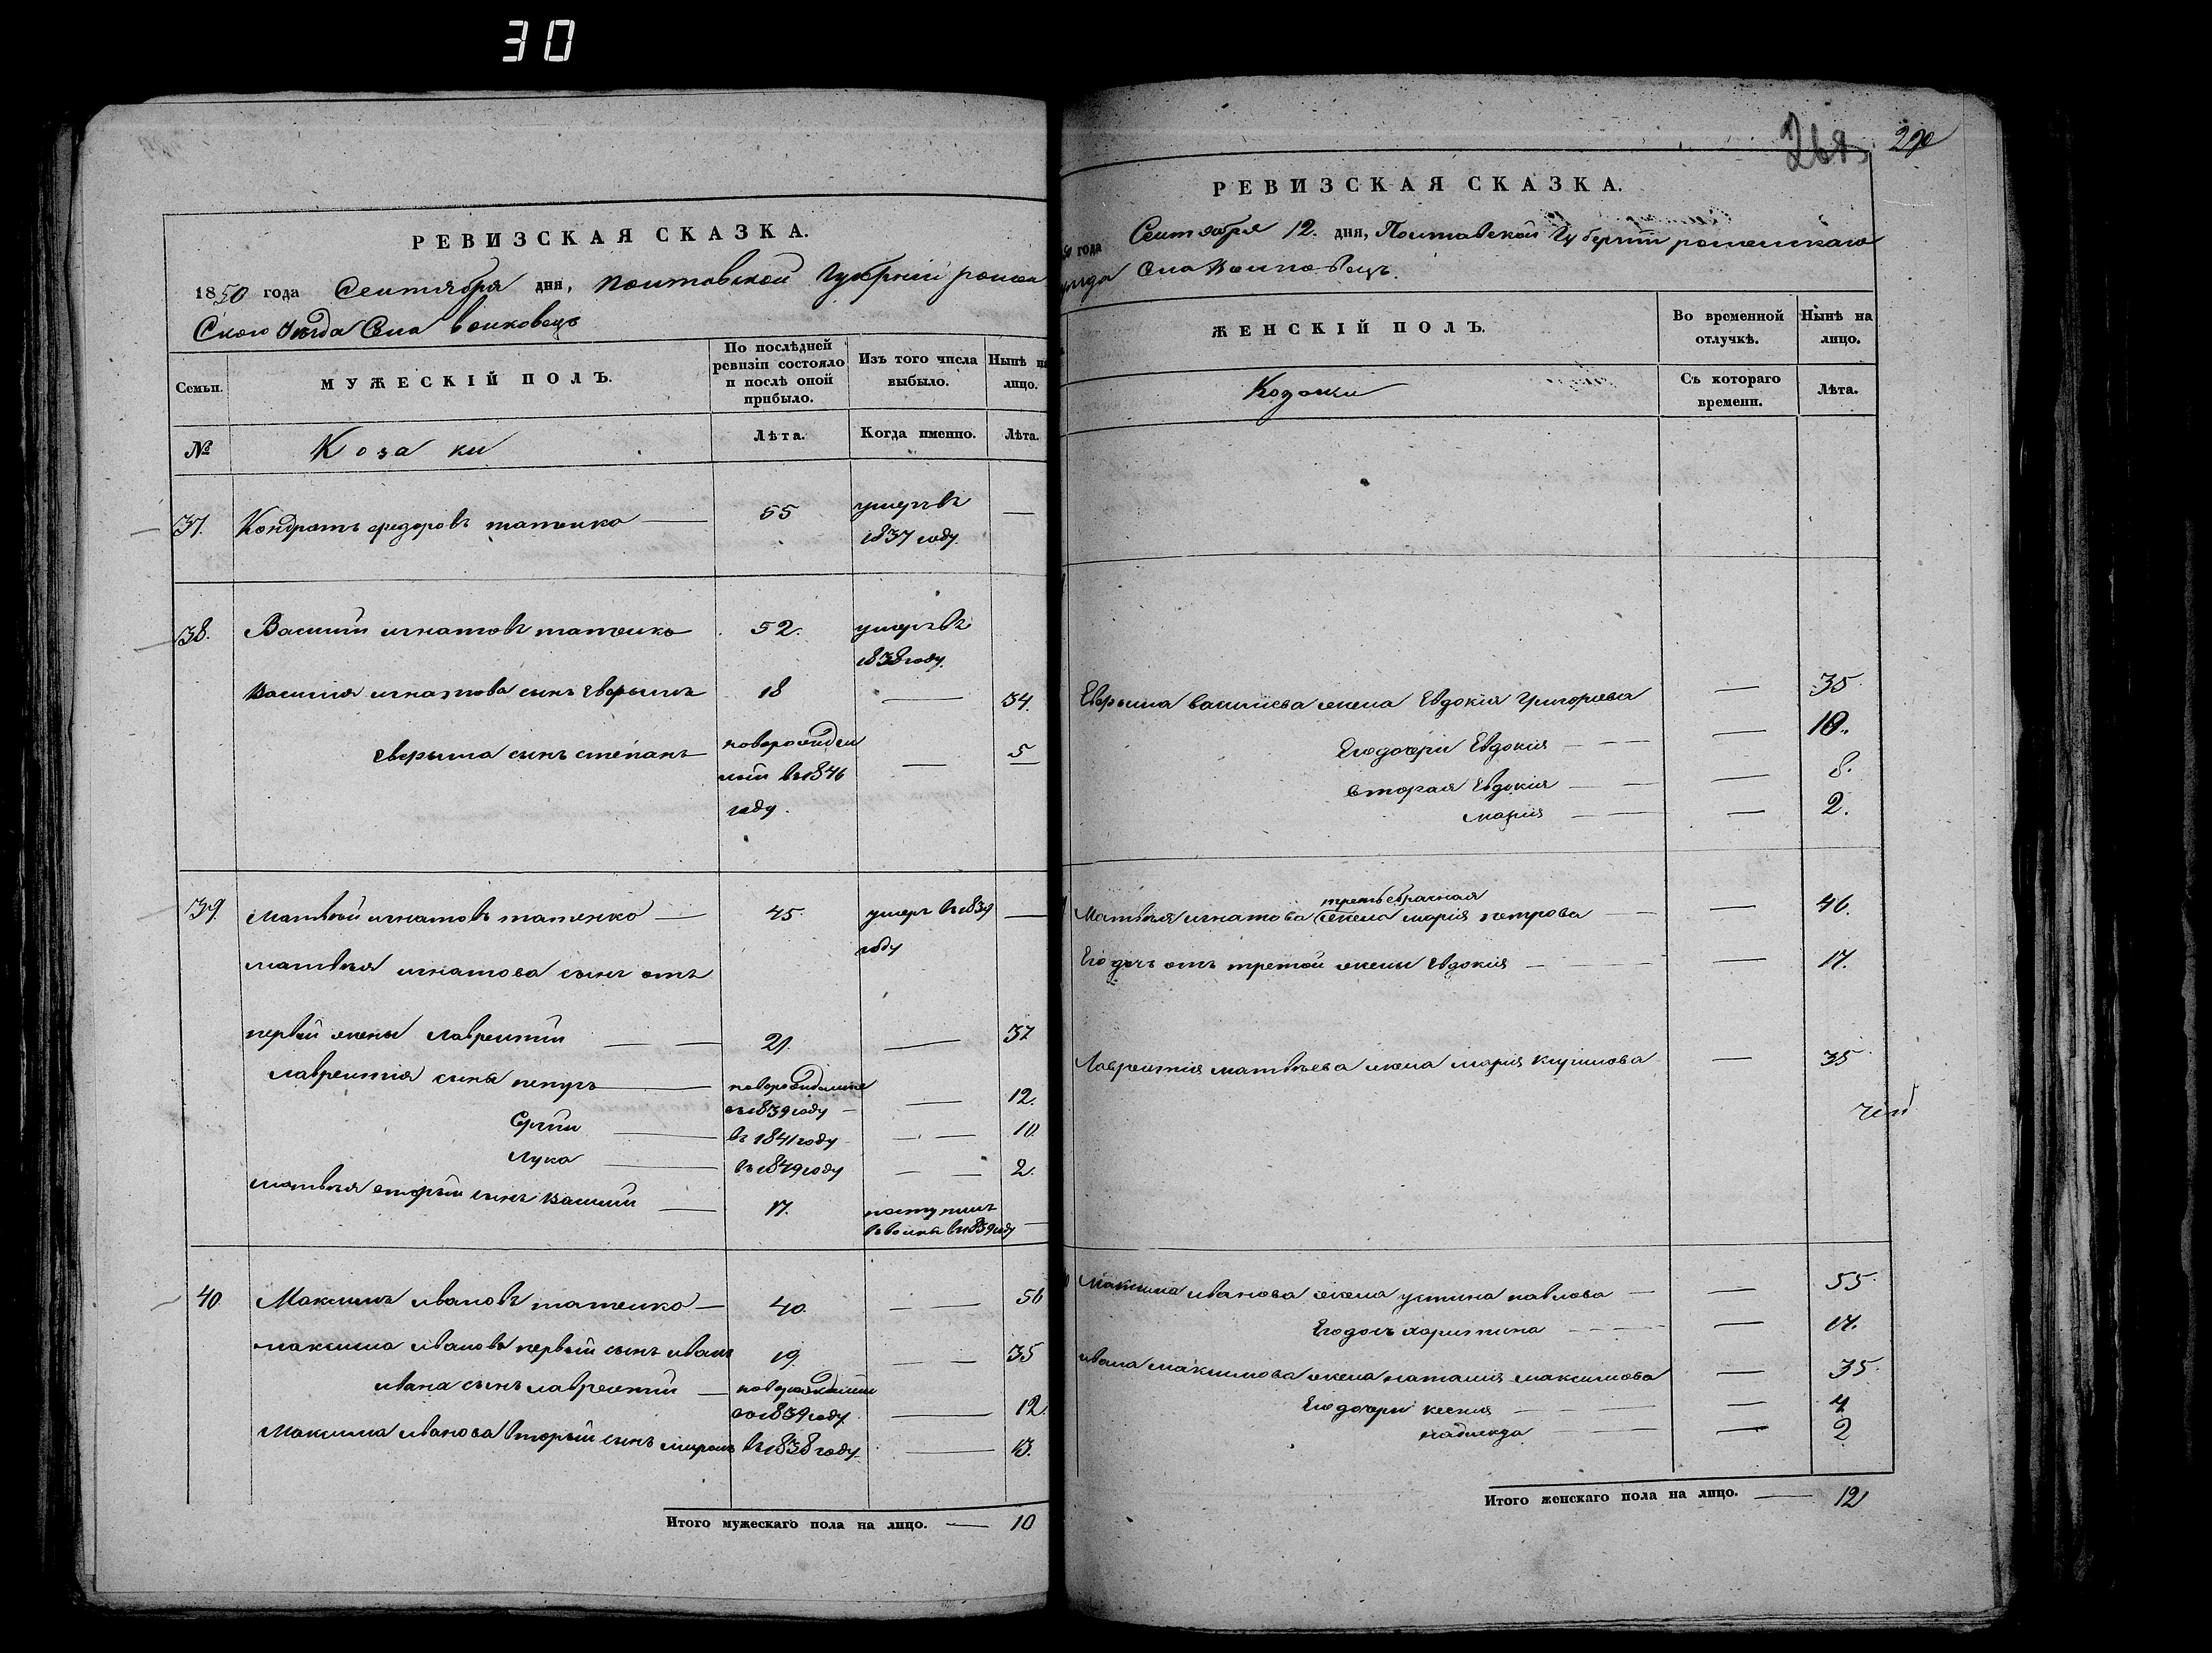 30
РЕВИЗСКАЯ СКАЗКА.
1850 года Сентября дня, Полтавской Губерніи ромен
Ского Уезда Села волковецъ
Семьи.
МУЖЕСКІЙ ПОЛЪ.
По послѣдней ревизіи состояло и послѣ оной прибыло.
Изъ того числа выбыло.
Нынѣ на лицо.
№
Козаки
Лѣта.
Когда именно.
Лѣта.
37. Кондратъ федоровъ татенко — 55 умеръ въ —
1837 году.
38. Василій игнатовъ татенко 52. умеръ въ
1838 году.
василія игнатова сынъ Ефремъ 18 — 34.
ефрема сынъ степанъ новорожден — 5
ный въ 1846
году.
39. матвей игнатовъ татенко — 45. умеръ в 1839 —
году
матвея игнатова сынъ отъ
первой жены лаврентій — — 21. — 37
лаврентія сыны петръ — новорожденные
въ 1839 году — — 12.
Сергій — въ 1841 году — — 10.
лука — въ 1849 году — — 2.
матвея вторый сынъ василій — 17. поступилъ
въ 1839 году —
40. Максимъ ивановъ татенко — 40. — — 56
максима иванова первый сынъ иванъ 19. — — 35
ивана сынъ лаврентій — новорожденный
въ 1839 году. — 12.
Максима иванова вторый сынъ миронъ въ 1838 году. — 13.
Итого мужескаго пола на лицо. — 10
268. 290
РЕВИЗСКАЯ СКАЗКА.
50 года Сентября 12. дня, Полтавской Губерніи роменскаго
уезда Села Волковецъ.
ЖЕНСКІЙ ПОЛЪ.
Во временной отлучкѣ.
Нынѣ на лицо.
Козачки
Съ котораго времени.
Лѣта.
Ефрема василіева жена Евдокія Григорьева — 35
Его дочери Евдокія — — — 10.
вторая Евдокія — — — 8.
марія — — — 2.
третьебрачная
Матвея игнатова жена марія петрова — — 46.
Его дочь отъ третой жены Евдокія — — — 17.
Лаврентія матвеева жена марія Кирилова — 35
Максима иванова жена устина павлова — — 55
Его дочь харитина — — — 17.
ивана максимова жена наталія максимова — 35
Его дочери ксенія — — — 4
надежда — — — 2
Итого женскаго пола на лицо. — 12